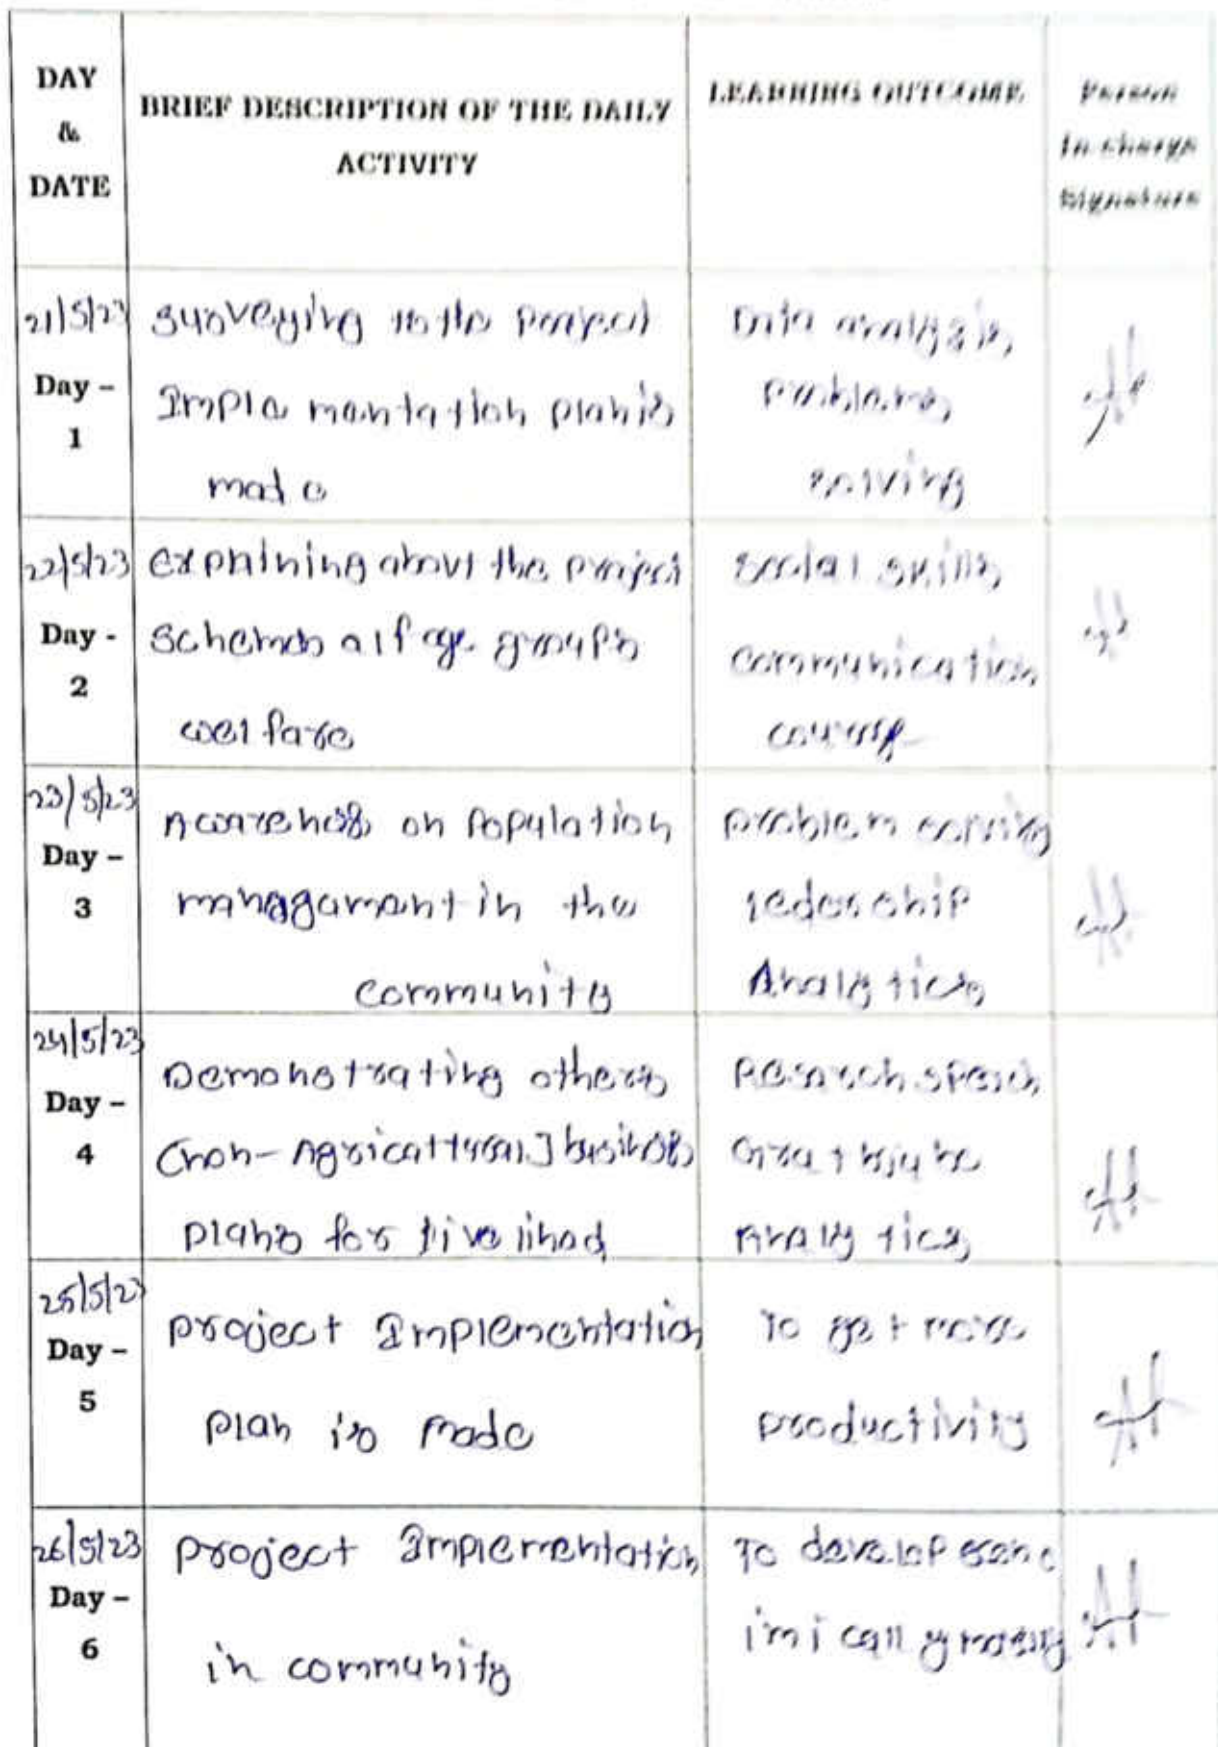 DAY
&
DATE
BRIEF DESCRIPTION OF THE DAILY
ACTIVITY
LEARNING OUTCOME
Person
In charge
Signature
21/5/23
Day –
1
surveying to the project
Implementation plan is
made
Data analysis,
problems
solving
22/5/23
Day -
2
explaining about the project
schemes all age groups
welfare
social skills
communication
23/5/23
Day –
3
Awareness on population
managgament in the
community
problem solving
ledership
Analytics
24/5/23
Day –
4
Demonstrating others
(non-Agricultural] business
plans for livelihad
Research speach
Analytics
25/5/23
Day –
5
project Implementation
plan is made
To get more
productivity
26/5/23
Day –
6
project Implementation
in community
To develop